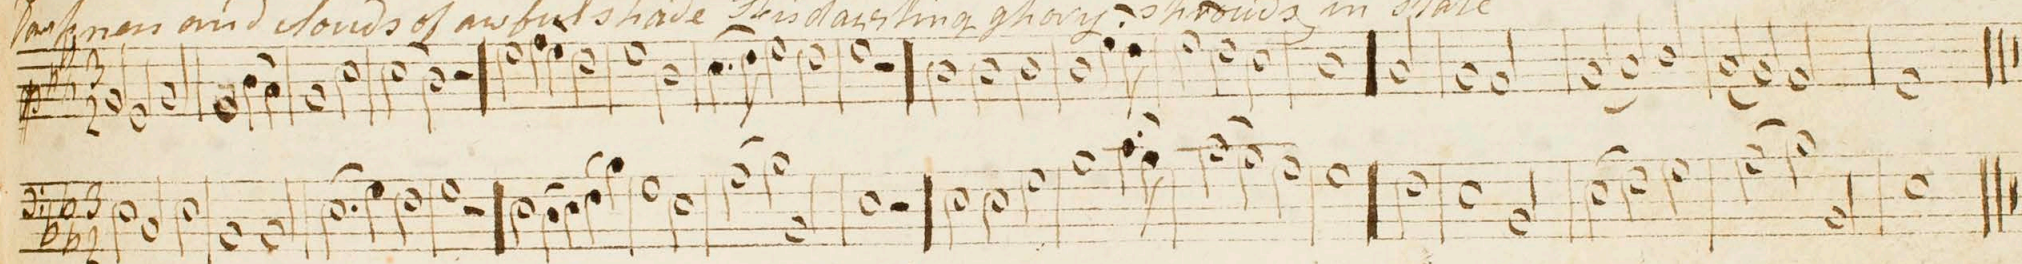 Darkness and clouds of awful shade His dazzling glory shrouds in state
3
2
3
2